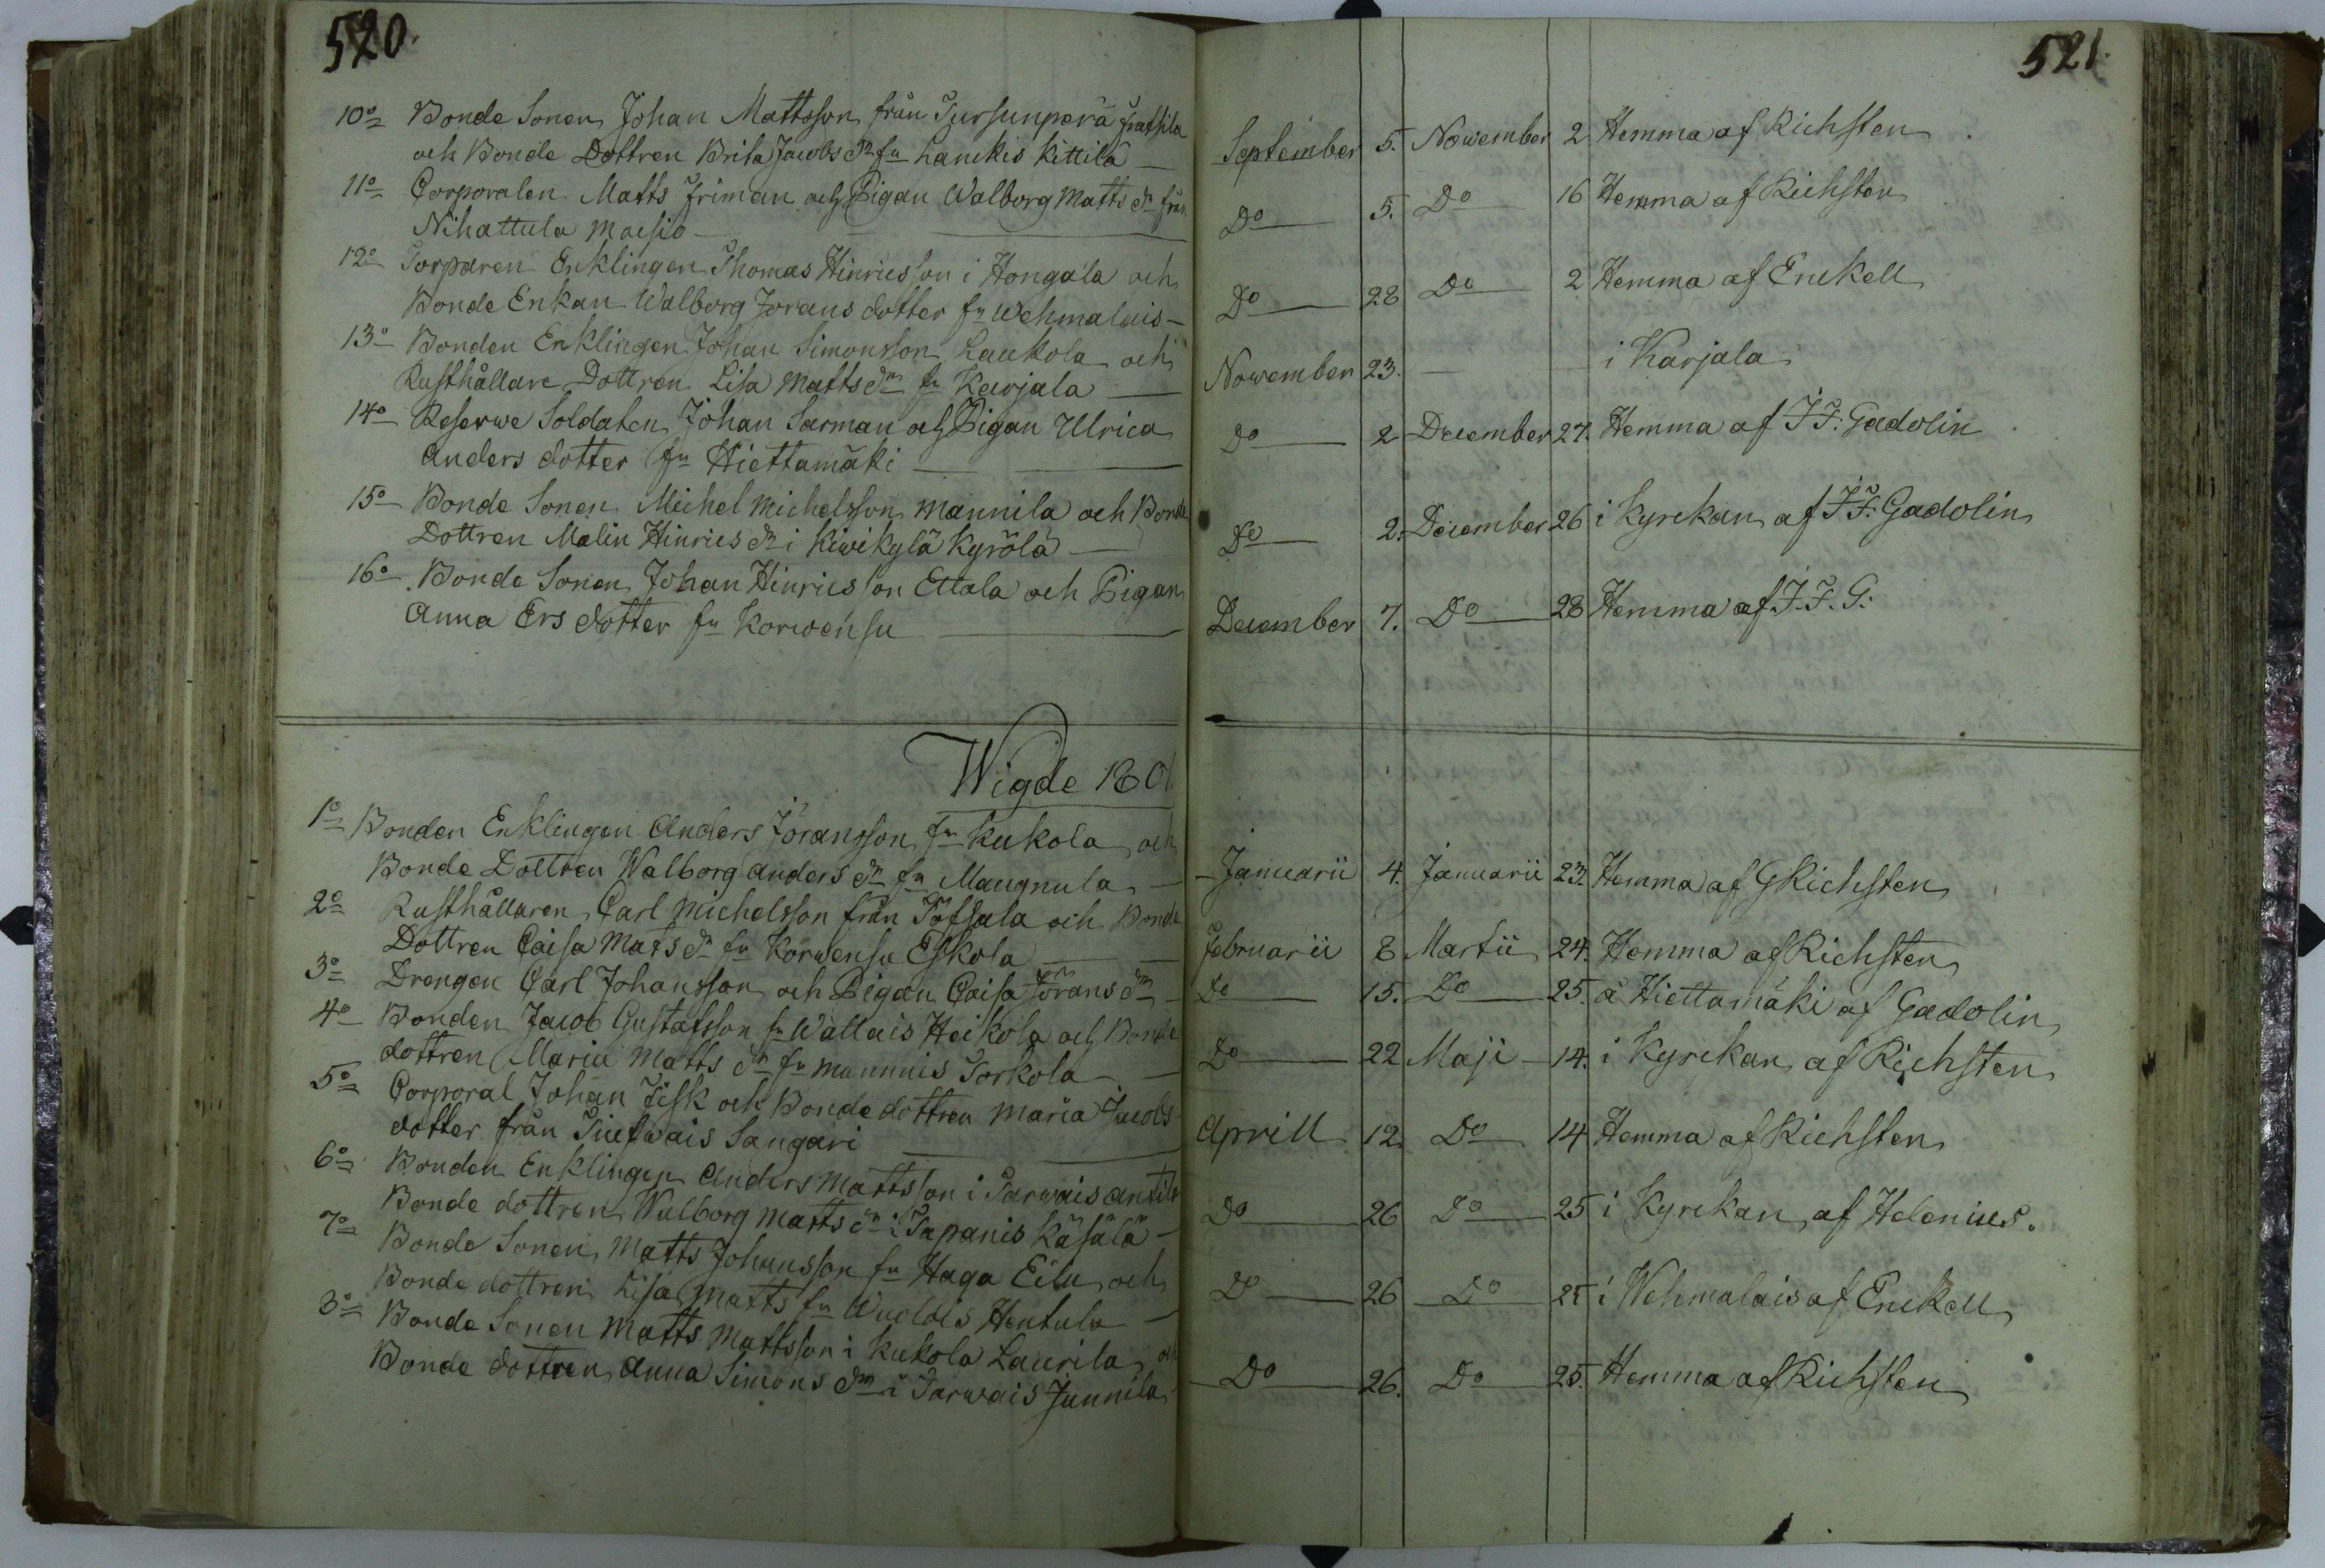 520.
10º Bonde Sonen Johan Mattsson från Tursunperä
och Bonde Dottren Brita Jacobs dr fn Lanckis Kittilä
11º Corporalen Matts Friman och Pigan Walborg Matts dr från
Nihattula
12º Torparen Enklingen Thomas Hinricsson i Hongala och
Bonde Enkan Walborg Jörans dotter fn Wehmalais
13º Bonden Enklingen Johan Simonsson Laukola och
Rusthållare Dottren Lisa Matts dr fn Karjala
14º Reserwe Soldaten Johan Sarman och Pigan Ulrica
Anders dotter fn Hiettamäki
15º Bonde Sonen Michel Michelsson Mannila och Bonde
Dottren Malin Hinrics dr i Kiwikylä Kyrölä
16º Bonde Sonen Johan Hinricsson Ettala och Pigan
Anna Ers dotter fn Korwensu
Wigde 1801
1º Bonden Enklingen Anders Jöransson fn Kukola och
Bonde Dottren Walborg Anders dr fn Maugnula
2º Rusthållaren Carl Michelsson från Töfsala och Bonde
Dottren Caisa Mats dr fn Korwensu Eskola
3º Drengen Carl Johansson och Pigan Caisa Jörans dr
4º Bonden Jacob Gustafsson fn Wallais Heikola och Bonde
dottren Maria Matts dr fn Mannuis Torkola
5º Corporal Johan Fisk och Bonde dottren Maria Jacobs
dotter från Sangari
6º Bonden Enklingen Anders Mattsson i Sarwais Antila
Bonde dottren Walborg Matts dr i Tapanis Käsälä
7º Bonde Sonen Matts Johansson fn Haga Eilu och
Bonde dottren Lisa Matts fn Hentula
8º Bonde Sonen Matts Mattsson i Kukola Laurila och
Bonde dottren Anna Simons dr i Sarwais Junnila
521.
September 5. Nowember 2 Hemma af Richsten
Dº 5. Dº 16 Hemma af Richsten
Dº 28 Dº 2 Hemma af Enckell
Nowember 23. i Karjala
Dº 2 December 27. Hemma af J F: Gadolin
Dº 2. December 26 i Kyrckan af J F: Gadolin
December 7. Dº 28 Hemma af J. F. G:
Januarii 4. Januarii 23. Hemma af G Richsten
Februarii 8 Martii 24. Hemma af Richsten
Dº 15. Dº 25. å Hiettamäki af Gadolin
Dº 22 Maji 14. i Kyrckan af Richsten
Aprill 12. Dº 14 Hemma af Richsten
Dº 26 Dº 25 i Kyrckan af Helenius.
Dº 26 Dº 25 i Wehmalais af Enckell
Dº 26. Dº 25. Hemma af Richsten